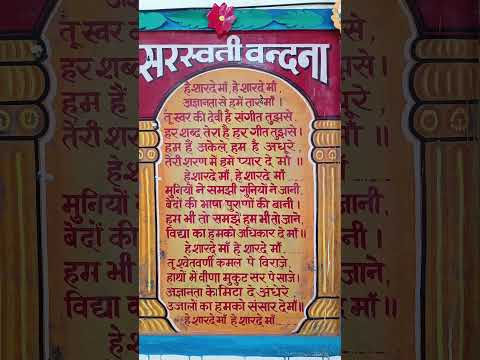 सरस्वती वन्दना
हे शारदे माँ, हे शारदे माँ,
अज्ञानता से हमें तार माँ ।
तू स्वर की देवी है संगीत तुझसे,
हर शब्द तेरा है हर गीत तुझसे।
हम हैं अकेले हम है अधूरे
तेरी शरण में हमें प्यार दे माँ ॥
हे शारदे माँ, हे शारदे माँ
मुनियों ने समझी गुनियों ने जानी,
बेदों की भाषा पुराणों की बानी।
हम भी तो समझें हम भी तो जाने,
विद्या का हमको अधिकार दे माँ॥
हे शारदे माँ हे शारदे माँ,
तू श्वेतवर्णी कमल पे विराजे,
हाथों में वीणा मुकुट सर पे साजे।
अज्ञानता के मिटा दे अंधेरे
उजालों का हमको संसार दे माँ॥
हे शारदे माँ हे शारदे माँ